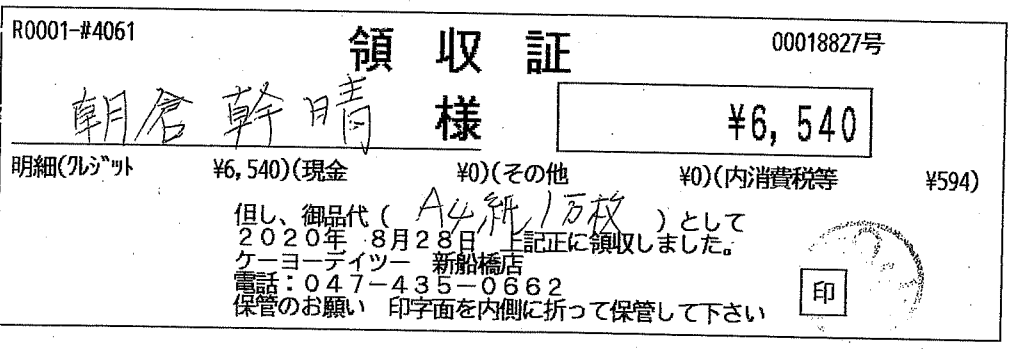 R0001-#4061
領収証
00018827号
朝倉幹晴 様
¥6,540
明細(クレジット ¥6,540)(現金 ¥0)(その他 ¥0)(内消費税等 ¥594)
但し、御品代( A4紙1万枚 )として
2020年 8月28日 上記正に領収しました。
ケーヨーデイツー 新船橋店
電話:047-435-0662
印
保管のお願い 印字面を内側に折って保管して下さい